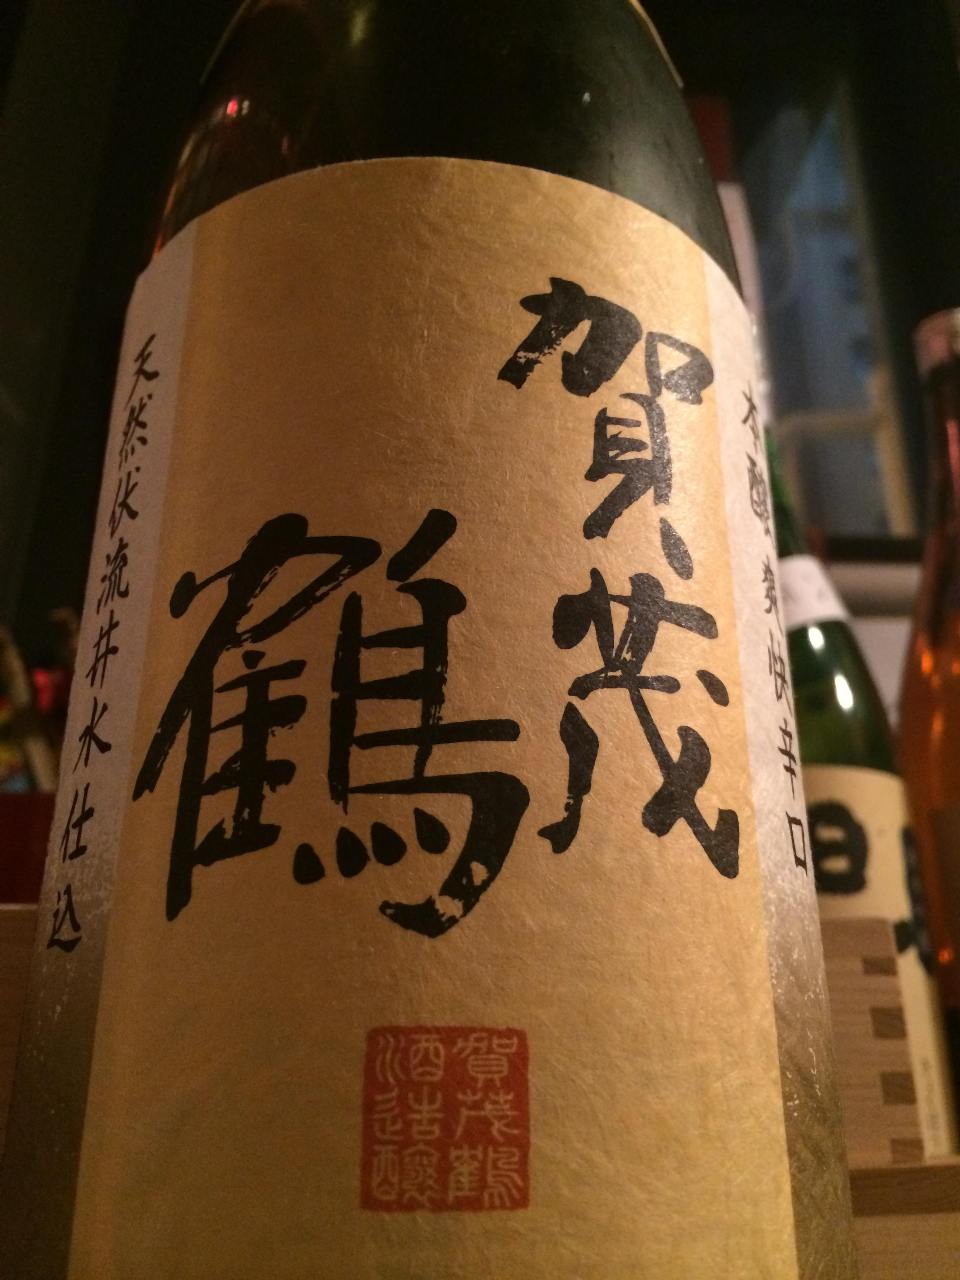 本醸 爽快辛口
賀茂
鶴
天然伏流井水仕込
賀茂鶴
酒造醸